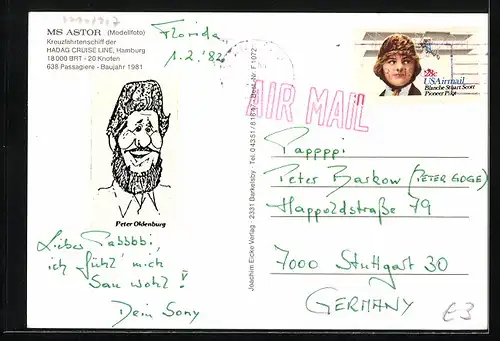 MS ASTOR (Modellfoto)
Kreuzfahrtenschiff der
HADAG CRUISE LINE, Hamburg
18000 BRT - 20 Knoten
638 Passagiere - Baujahr 1981
Florida
1.2.'82
Peter Oldenburg
Lieber Pabbbbi,
ich fühl' mich
Sau wohl!
Dein Sony
Joachim Eicke Verlag · 2331 Barkelsby · Tel. 04351/81
Best.-Nr. F 1072
AIR MAIL
28c
USAirmail
Blanche Stuart Scott
Pioneer Pilot
Pappppi
Peter Barkow (PETER GOGE)
Happoldstraße 79
7000 Stuttgart 30
GERMANY
£3